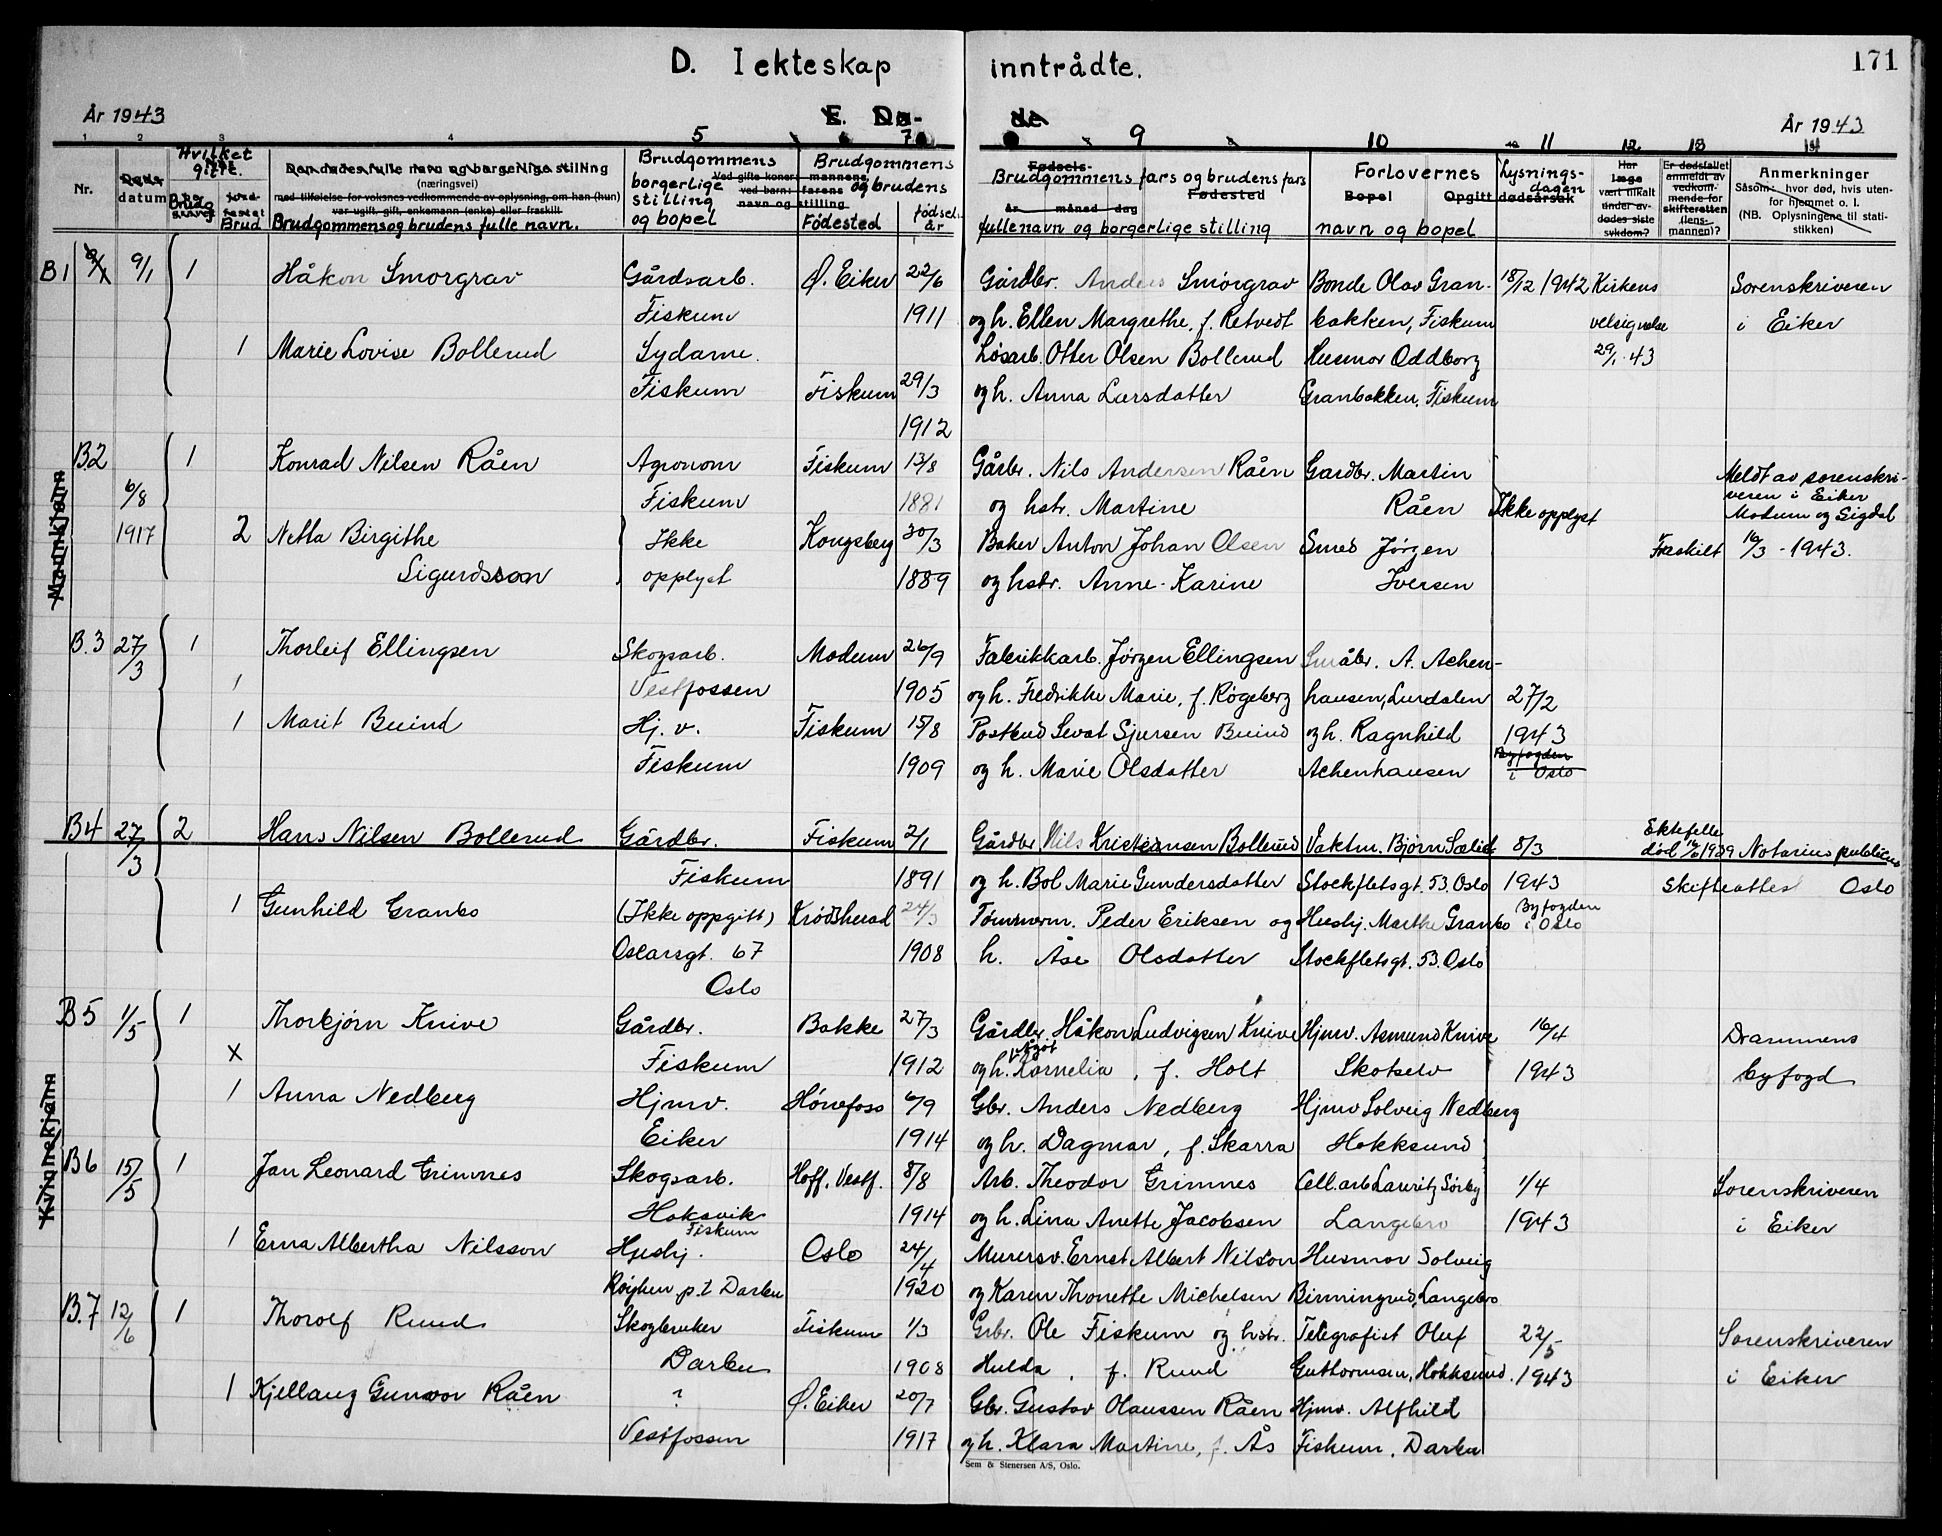 171
D. I ekteskap inntrådte.
År 1943 E. Dø- de År 1943
1 2 3 4 5 6 7 9 10 11 12 13 14
Nr.
Døds datum
Hvilket gifte.
Brudg. Brud
Den dødes fulle navn og borgerlige stilling
(næringsvei)
med tilføielse for voksnes vedkommende av oplysning, om han (hun)
var ugift, gift, enkemann (enke) eller fraskilt
Brudgommens og brudens fulle navn.
Brudgommens borgerlige stilling og bopel
Ved gifte koner: mannens
ved barn: farens
navn og stilling
Brudgommens og brudens
Fødested fødsels år
Fødsels-
Brudgommens fars og brudens fars
Fødested
år måned dag
fulle navn og borgerlige stilling
Forlovernes
Bopel
navn og bopel
Lysnings-dagen
Opgitt dødsårsak
Har læge vært tilkalt under avdødes siste sykdom?
Er dødsfallet anmeldt av vedkommende for skifteretten (lensmannen)?
Anmerkninger
Såsom: hvor død, hvis utenfor hjemmet o. l.
(NB. Oplysningene til statistikken)
B1 9/1 1 Håkon Smørgrav Gårdsarb. Ø. Eiker 22/6 Gårdbr. Anders Smørgrav Bonde Olav Gran- 18/12 1942 Kirkens Sorenskriveren
Fiskum 1911 og h. Ellen Margrethe, f. Retvedt bakken, Fiskum velsignelse i Eiker
1 Marie Lovise Bollerud Sydame. Løsarb. Otter Olsen Bollerud Husmor Oddborg 29/1 43
Fiskum Fiskum 29/3 og h. Anna Larsdatter Granbakken, Fiskum
1912
B2 1 Konrad Nilsen Råen Agronom Fiskum 13/8 Gårbr. Nils Andersen Råen Gardbr. Martin Meldt av sorenskri-
6/8 Fiskum 1881 og hstr. Martine Råen Ikke opplyst veren i Eiker
Modum og Sigdal
Mannkjønn
1917 2 Netta Birgithe Ikke Kongsberg 30/3 Baker Anton Johan Olsen Smed Jørgen Fraskilt 16/3 - 1943.
Sigurdsson opplyst 1889 og hstr. Anne-Karine Iversen
B.3 27/3 1 Thorleif Ellingsen Skogsarb. Modum 26/9 Fabrikkarb. Jørgen Ellingsen Småbr. A. Achen-
1 Vestfossen 1905 og h. Fredrikke Marie, f. Røgeberg hausen, Lurdalen 27/2
1 Marit Buind Hj. v. Fiskum 15/8 Postbud Sevat Sjursen Buind og h. Ragnhild 1943
Fiskum 1909 og h. Marie Olsdatter Achenhausen Byfogden i Oslo
B4 27/3 2 Hans Nilsen Bollerud Gårdbr. Fiskum 2/1 Gårdbr Nils Kristensen Bollerud Vaktm. Bjørn Sælid 8/3 Ektefelle død 1929 Notarius publicus
Fiskum 1891 og h. Bol Marie Gundersdatter Stockfletsgt. 53. Oslo 1943 Skifteattest Oslo
1 Gunhild Granbo (Ikke oppgitt) Krødsherad 24/3 Tømmerm. Peder Eriksen og Hushj. Marthe Granbo Byfogden i Oslo
Oscarsgt. 67 1908 h. Åse Olsdatter Stockfletsgt. 53. Oslo
Oslo
B5 1/5 1 Thorbjørn Knive Gårdbr. Bakke 27/3 Gårdbr. Håkon Ludvigsen Knive Hjmv. Asmund Knive 16/4 Drammens
x Fiskum 1912 og h. Kornelia, f. Holt Skotselv 1943 byfogd
1 Anna Nedberg Hjmv. Hønefoss 6/9 Gbr. Anders Nedberg Hjmv Solveig Nedberg
Eiker 1914 og h. Dagmar, f. Skarra Hokksund
Kvinnekjønn
B6 15/5 1 Jan Leonard Grimnes Skogsarb. Hoff. Vestf. 8/8 Arb. Theodor Grimnes Cell.arb Lauritz Sørby 1/4 Sorenskriveren
Hoksvik 1914 og h. Lina Anette Jacobsen Langebro 1943 i Eiker
Fiskum
1 Erna Albertha Nilsson Hjeshj. Oslo 24/4 Murersv. Ernst Albert Nilsson Husmor Solveig
Røyken p.t Darbu 1920 og Karen Thonette Michelsen Birmingrud, Langebro
B.7 12/6 1 Thorolf Ruud Skogbruker Fiskum 1/3 Grbr. Ole Fiskum og hstr. Telegrafist Oluf 22/5 Sorenskriveren
Darbu 1908 Hulda, f. Ruud Guthormsen, Hokksund. 1943 i Eiker
1 Kjellaug Gunvor Råen ? Ø. Eiker 20/7 Gbr. Gustav Olaussen Råen Hjmv. Alfhild
Vestfossen 1917 og h. Klara Martine, f. Ås Fiskum, Darbu
Sem & Stenersen A/S, Oslo.